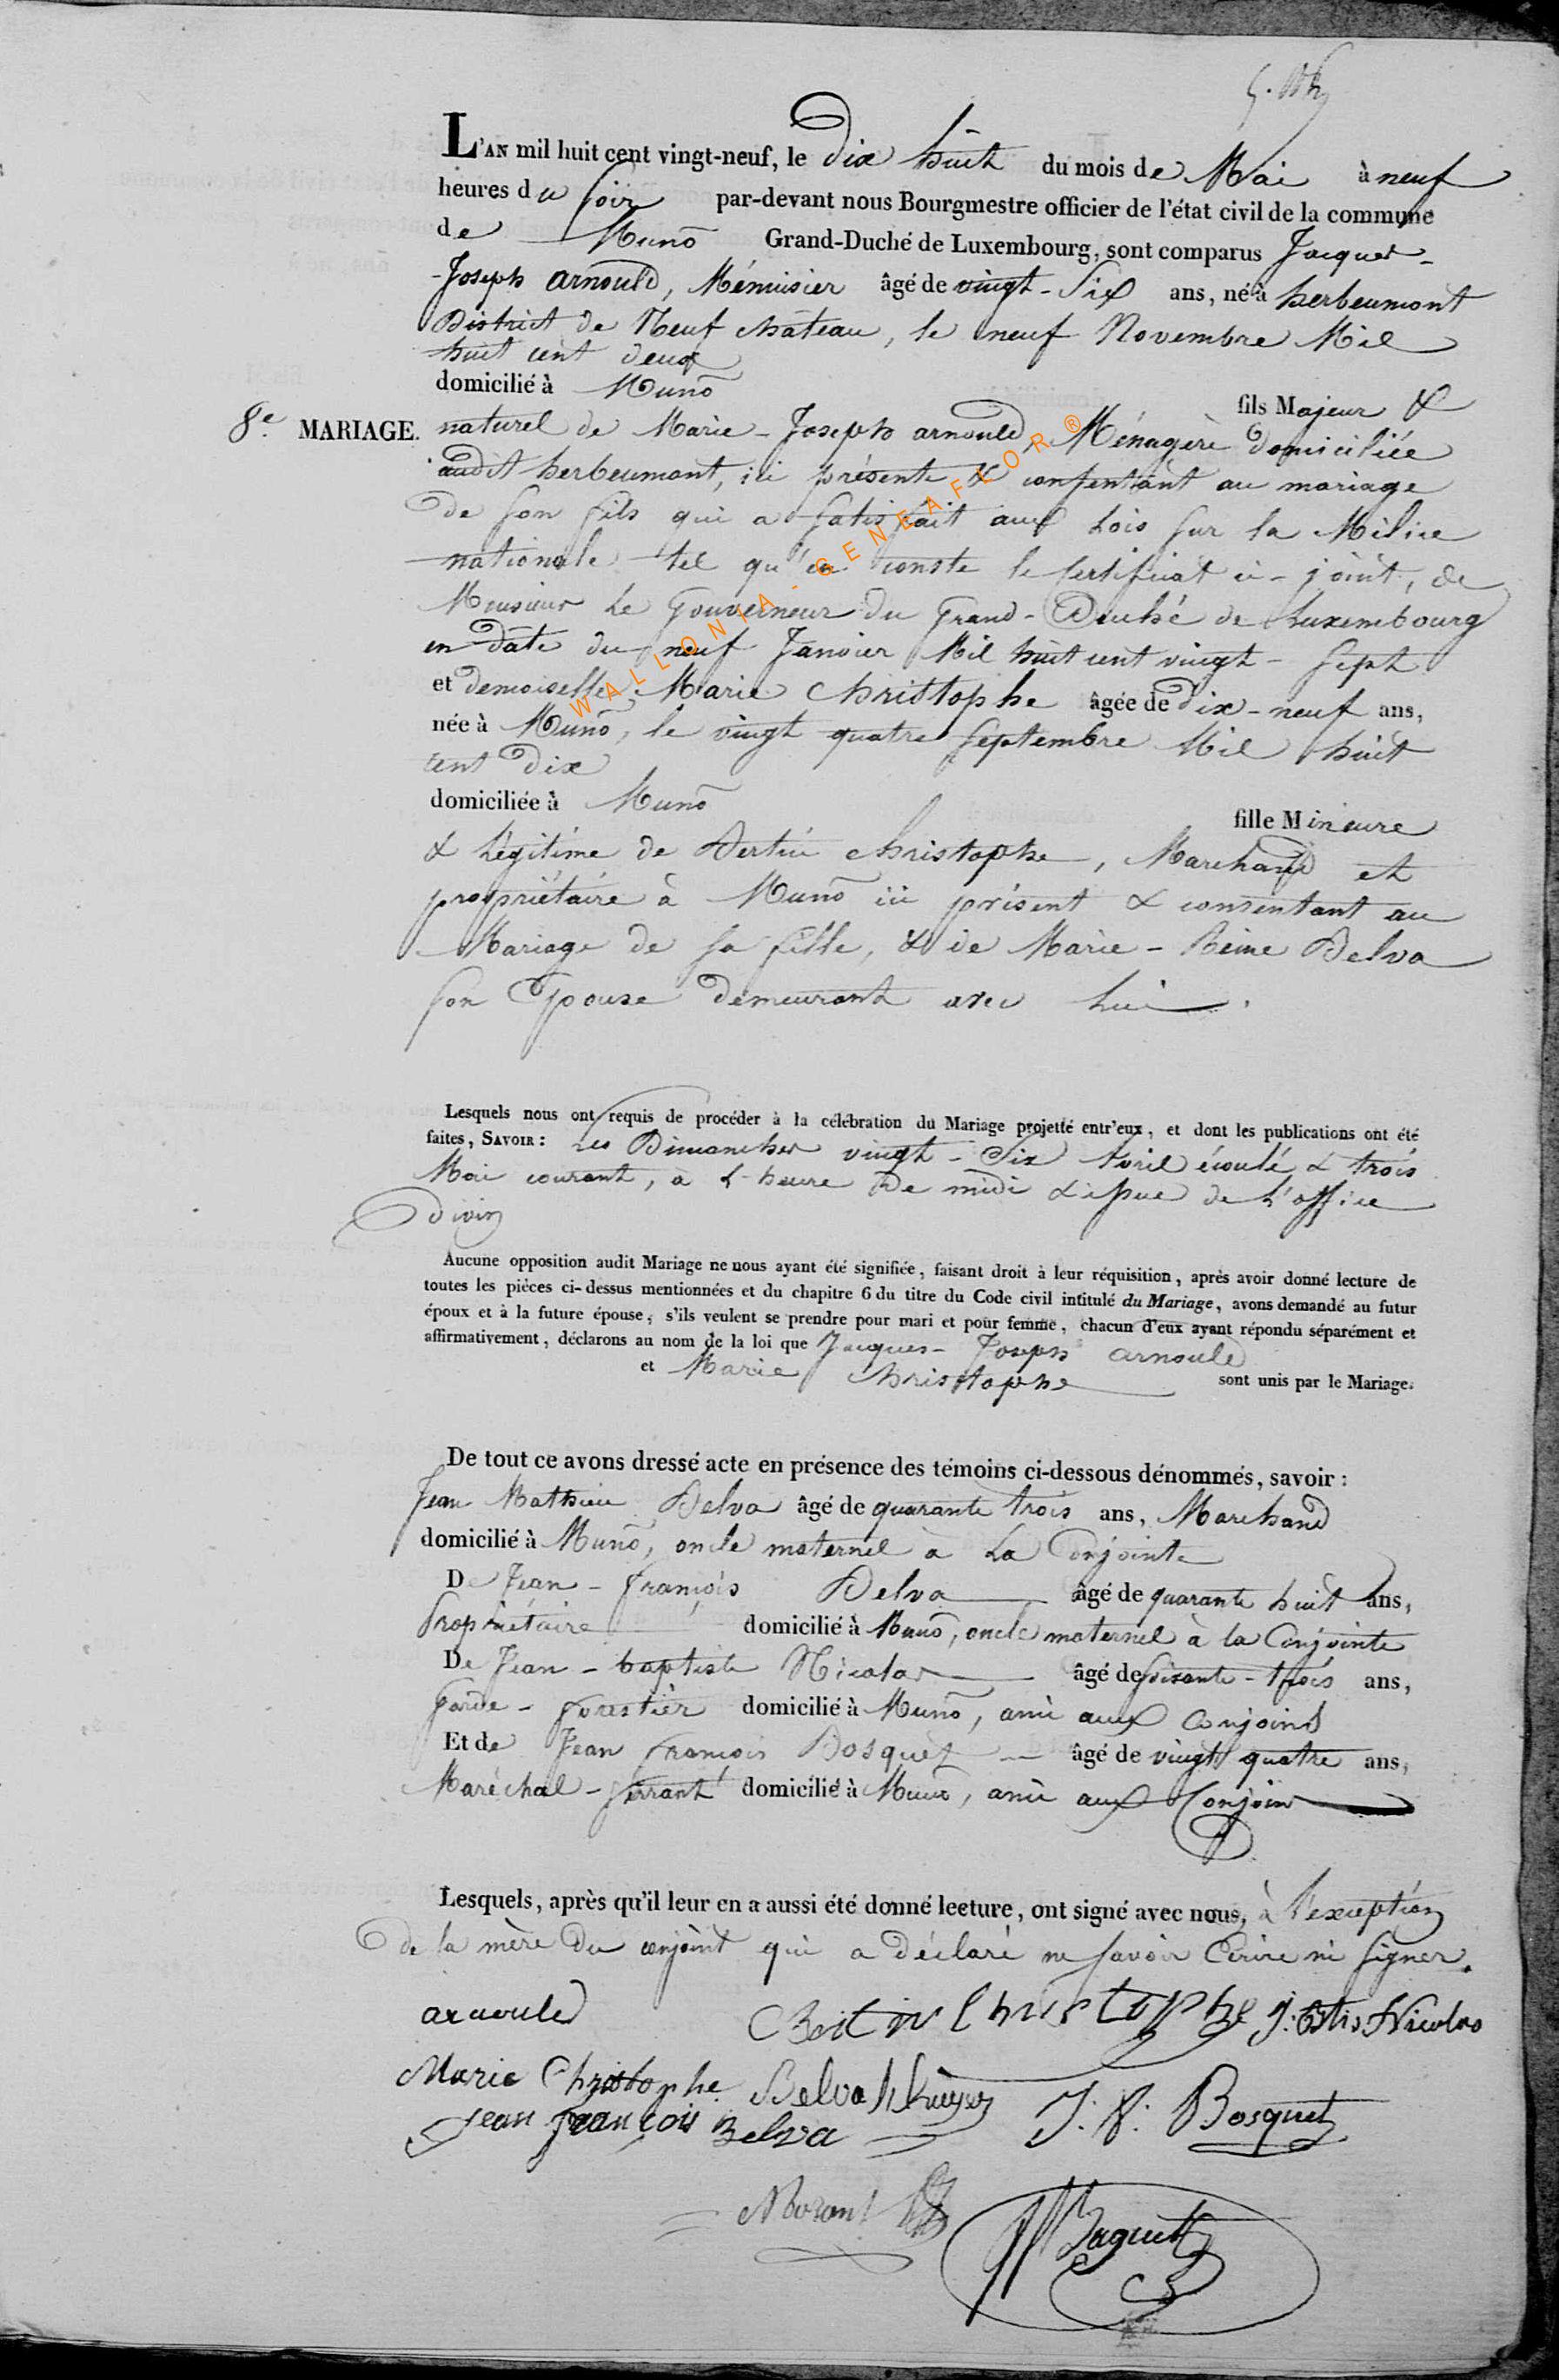 L'AN mil huit cent vingt-neuf, le dix huit du mois de Mai à neuf
heures du soir par-devant nous Bourgmestre officier de l'état civil de la commune
de Muno Grand-Duché de Luxembourg, sont comparus Jacques-
Joseph arnould, Ménuisier âgé de vingt-Six ans, né à herbeumont
District de Neufchâteau, le neuf Novembre Mil
huit cent deux
domicilié à Muno fils Majeur &
8e. MARIAGE. naturel de Marie-Joseph arnould, Ménagère domiciliée
audit herbeumont, ici présente & consentant au mariage
de son fils qui a satisfait aux Lois sur la Milice
nationale tel qu'en conste le Certificat ci-joint, de
Monsieur Le Gouverneur du Grand-Duché de Luxembourg
en date du neuf Janvier Mil huit cent vingt-sept
et demoiselle Marie Christophe âgée de dix-neuf ans,
née à Muno, le vingt quatre Septembre Mil huit
cent Dix
domiciliée à Muno fille Mineure
& Légitime de Bertin Christophe, Marchand et
propriétaire à Muno ici présent & consentant au
Mariage de sa fille, & de Marie-Reine Delva
son Epouse demeurant avec lui.
Lesquels nous ont requis de procéder à la célébration du Mariage projetté entr'eux, et dont les publications ont été
faites, SAVOIR: Les Dimanches vingt-Six Avril écoulé & trois
Mai courant, à L'heure de midi & issue de L'office
divin
Aucune opposition audit Mariage ne nous ayant été signifiée, faisant droit à leur réquisition, après avoir donné lecture de
toutes les pièces ci-dessus mentionnées et du chapitre 6 du titre du Code civil intitulé du Mariage, avons demandé au futur
époux et à la future épouse, s'ils veulent se prendre pour mari et pour femme, chacun d'eux ayant répondu séparément et
affirmativement, déclarons au nom de la loi que Jacques-Joseph arnould
et Marie Christophe sont unis par le Mariage.
De tout ce avons dressé acte en présence des témoins ci-dessous dénommés, savoir:
Jean Mathieu Delva âgé de quarante trois ans, Marchand
domicilié à Muno, oncle maternel à La Conjointe
De Jean-François Delva âgé de quarante huit ans,
Propriétaire domicilié à Muno, oncle maternel à la Conjointe
De Jean-baptiste Nicolas âgé de soixante-trois ans,
Garde-forestier domicilié à Muno, ami aux Conjoins
Et de Jean François Bosquet âgé de vingt quatre ans,
Maréchal-ferrant domicilié à Muno, ami aux Conjoins
Lesquels, après qu'il leur en a aussi été donné lecture, ont signé avec nous, à l'exception
de la mère du conjoint qui a déclaré ne savoir Ecrire ni signer.
arnould Bertin Christophe J: Btis Nicolas
Marie Christophe Delva
Jean François Delva J. F. Bosquet
WALLONIA-GENEAFLOR®